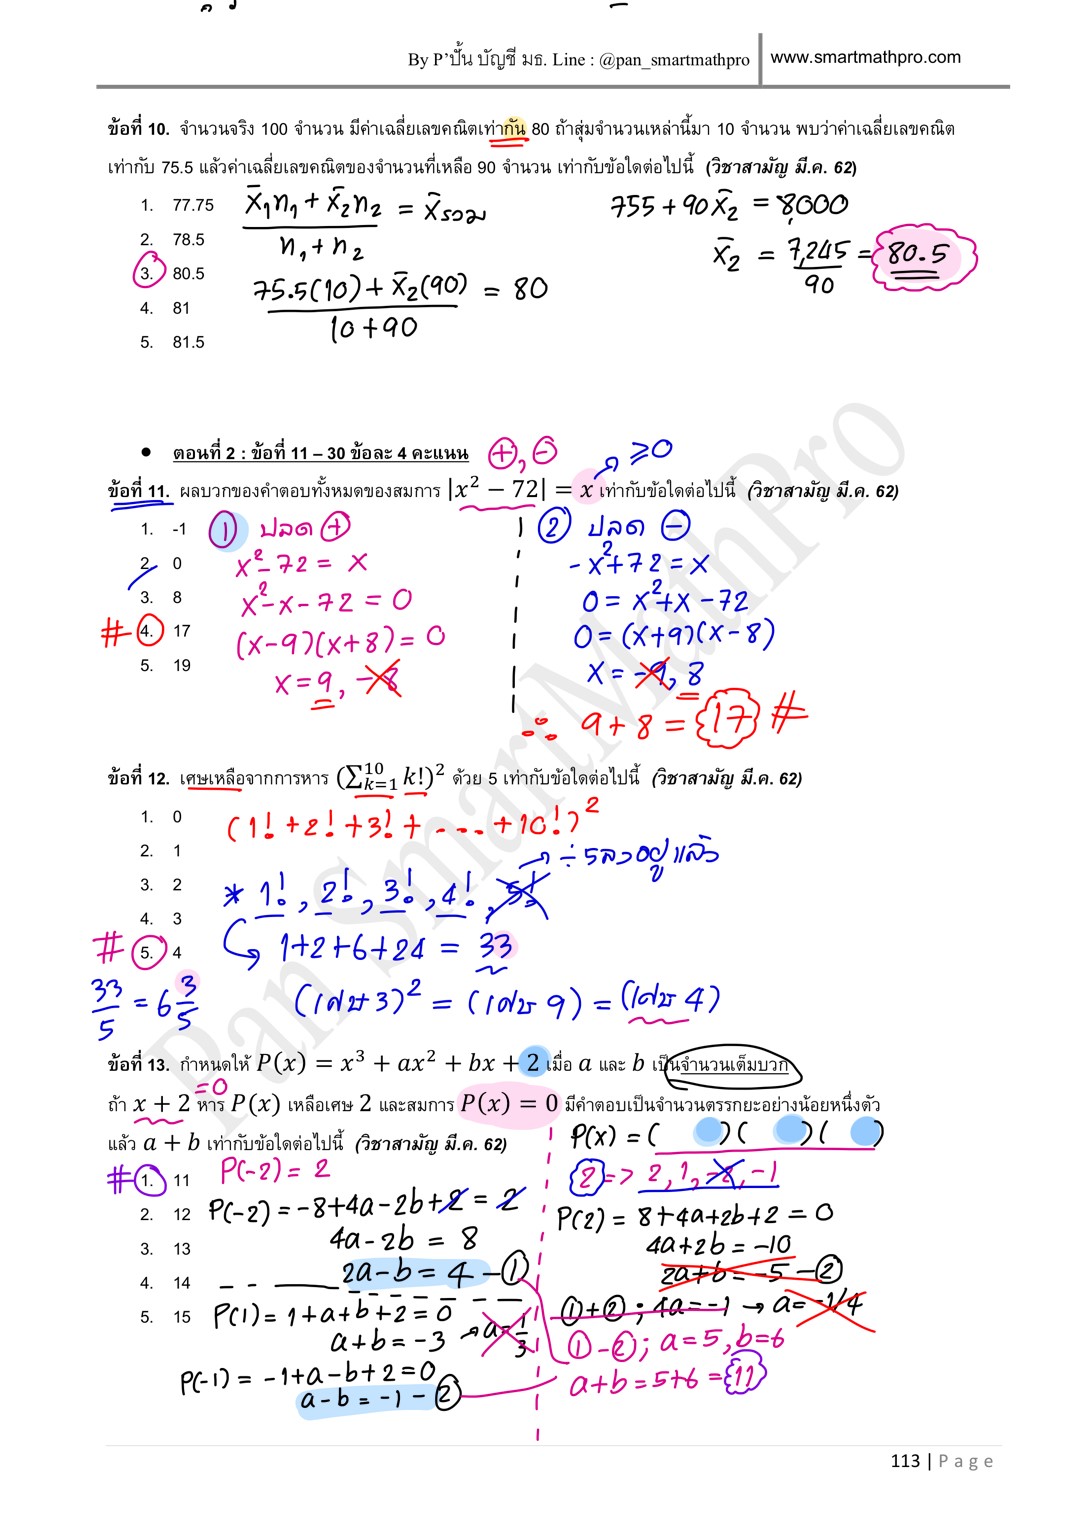 By P'ปั้น บัญชี มธ. Line : @pan_smartmathpro
www.smartmathpro.com
ข้อที่ 10. จำนวนจริง 100 จำนวน มีค่าเฉลี่ยเลขคณิตเท่ากัน 80 ถ้าสุ่มจำนวนเหล่านี้มา 10 จำนวน พบว่าค่าเฉลี่ยเลขคณิต
เท่ากับ 75.5 แล้วค่าเฉลี่ยเลขคณิตของจำนวนที่เหลือ 90 จำนวน เท่ากับข้อใดต่อไปนี้ (วิชาสามัญ มี.ค. 62)
1. 77.75
2. 78.5
3. 80.5
4. 81
5. 81.5
x̄₁n₁ + x̄₂n₂ = x̄รวม
n₁ + n₂
75.5(10) + x̄₂(90) = 80
10 + 90
755 + 90x̄₂ = 8000
x̄₂ = 7,245 = 80.5
90
• ตอนที่ 2 : ข้อที่ 11 – 30 ข้อละ 4 คะแนน +, -
≥0
ข้อที่ 11. ผลบวกของคำตอบทั้งหมดของสมการ |x² − 72| = x เท่ากับข้อใดต่อไปนี้ (วิชาสามัญ มี.ค. 62)
1. -1
2. 0
3. 8
# 4. 17
5. 19
① ปลด +
x² - 72 = x
x² - x - 72 = 0
(x-9)(x+8) = 0
x = 9, -8
② ปลด -
-x² + 72 = x
0 = x² + x - 72
0 = (x+9)(x-8)
x = -9, 8
∴ 9 + 8 = 17 #
ข้อที่ 12. เศษเหลือจากการหาร (∑¹⁰ₖ₌₁ k!)² ด้วย 5 เท่ากับข้อใดต่อไปนี้ (วิชาสามัญ มี.ค. 62)
1. 0
2. 1
3. 2
4. 3
# 5. 4
(1! + 2! + 3! + .... + 10!)²
÷ 5 ลงอยู่แล้ว
* 1!, 2!, 3!, 4!, 5!
1+2+6+24 = 33
33/5 = 6 3/5
(เศษ 3)² = (เศษ 9) = (เศษ 4)
ข้อที่ 13. กำหนดให้ P(x) = x³ + ax² + bx + 2 เมื่อ a และ b เป็นจำนวนเต็มบวก
=0
ถ้า x + 2 หาร P(x) เหลือเศษ 2 และสมการ P(x) = 0 มีคำตอบเป็นจำนวนตรรกยะอย่างน้อยหนึ่งตัว
แล้ว a + b เท่ากับข้อใดต่อไปนี้ (วิชาสามัญ มี.ค. 62)
# 1. 11
2. 12
3. 13
4. 14
5. 15
P(-2) = 2
P(-2) = -8+4a-2b+2 = 2
4a-2b = 8
2a-b = 4 - ①
P(1) = 1+a+b+2 = 0
a+b = -3 → a = 1/3
P(-1) = -1+a-b+2 = 0
a-b = -1 - ②
P(x) = ( )( )( )
2 => 2, 1, -2, -1
P(2) = 8+4a+2b+2 = 0
4a+2b = -10
2a+b = -5 - ②
①+② ; 4a = -1 → a = -1/4
①-② ; a=5, b=6
a+b = 5+6 = 11
Pan SmartMathPro
113 | Page